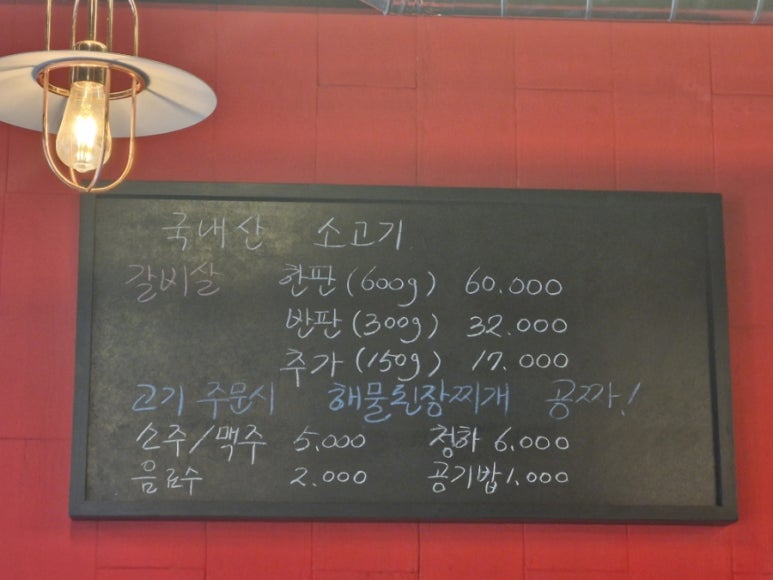 국내산 소고기
갈비살 한판(600g) 60.000
반판(300g) 32.000
추가(150g) 17.000
고기 주문시 해물된장찌개 공짜!
소주/맥주 5.000 청하 6.000
음료수 2.000 공기밥 1.000